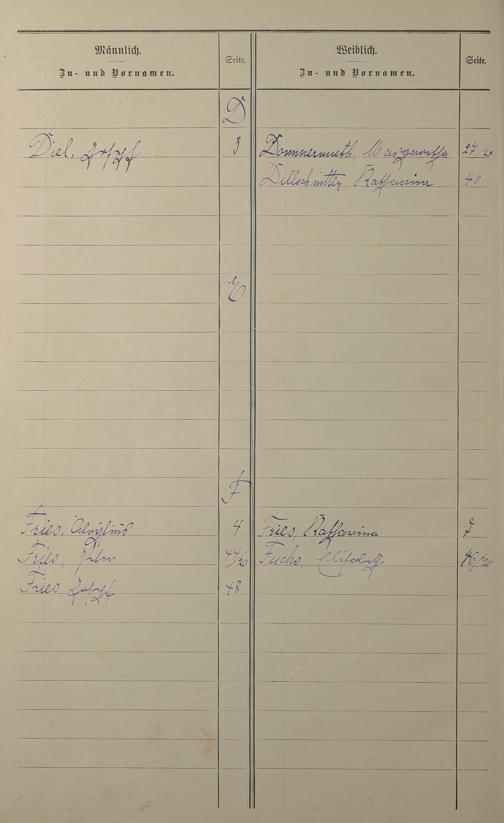 Männlich. Weiblich.
Zu- und Vornamen. Seite. Zu- und Vornamen. Seite.
D
Diel, Joseph 3 Donnermuth, Margaretha 27/20
Dillschnitter, Katharina 40
E
F
Fries, Aloysius 4 Fries, Katharina 7
Fries, Peter 44/20 Fuchs, Elisabeth 46/20
Fries, Joseph 48